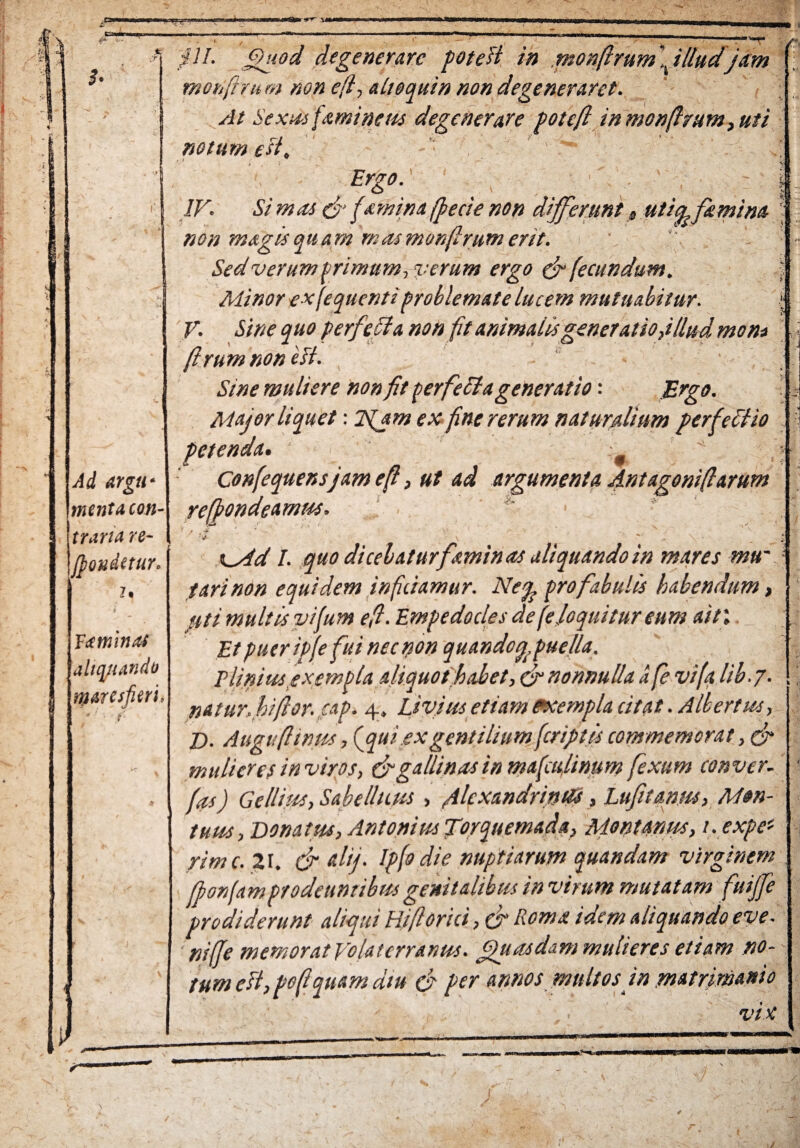 3.
III. Quod degenerare potest in monstrum, illud jam
monstrum non est, alioquin non degeneraret.
At Sexus fæmineus degenerare potest in monstrum, uti
notum est.
Ergo.
IV. Si mas & fæmina specie non differunt, utiq; fæmina
non magis quam mas monstrum erit.
Sed verum primum, verum ergo & secundum.
Minor ex sequenti problemate lucem mutuabitur.
V. Sine quo perfecta non fit animalis generatio, illud mon-
strum non est.
Sine muliere non fit perfecta generatio: Ergo.
Major liquet: Nam ex fine rerum naturalium perfectio
petenda.
Ad argu-
menta con-
traria re-
spondetur.
Consequens jam est, ut ad argumenta Antagonistarum
respondeamus.
1.
Ad I. quo dicebatur fæminas aliquando in mares mu-
tari non equidem inficiamur. Neq; pro fabulis habendum,
uti multis visum est. Empedocles de se loquitur cum ait:
Fæminas
aliquando
mares fieri.
Et puer ipse fui nec non quandoq; puella.
Plinius exempla aliquot habet, & nonnulla à se visa lib. 7.
natur. histor. cap. 4. Livius etiam exempla citat. Albertus,
D. Augustinus, (qui ex gentilium scriptis commemorat, &
mulieres in viros, & gallinas in masculinum sexum conver-
sas) Gellius, Sabellicus, Alexandrinus, Lusitanus, Mon-
tuus, Donatus, Antonius Torquemada, Montanus, 1. expe-
rim c. 21. & alij. Ipso die nuptiarum quandam virginem
sponsam prodeuntibus genitalibus in virum mutatam fuisse
prodiderunt aliqui Historici, & Romæ idem aliquando eve-
nisse memorat Volaterranus. Quasdam mulieres etiam no-
tum est, postquam diu & per annos multos in matrimonio
vix